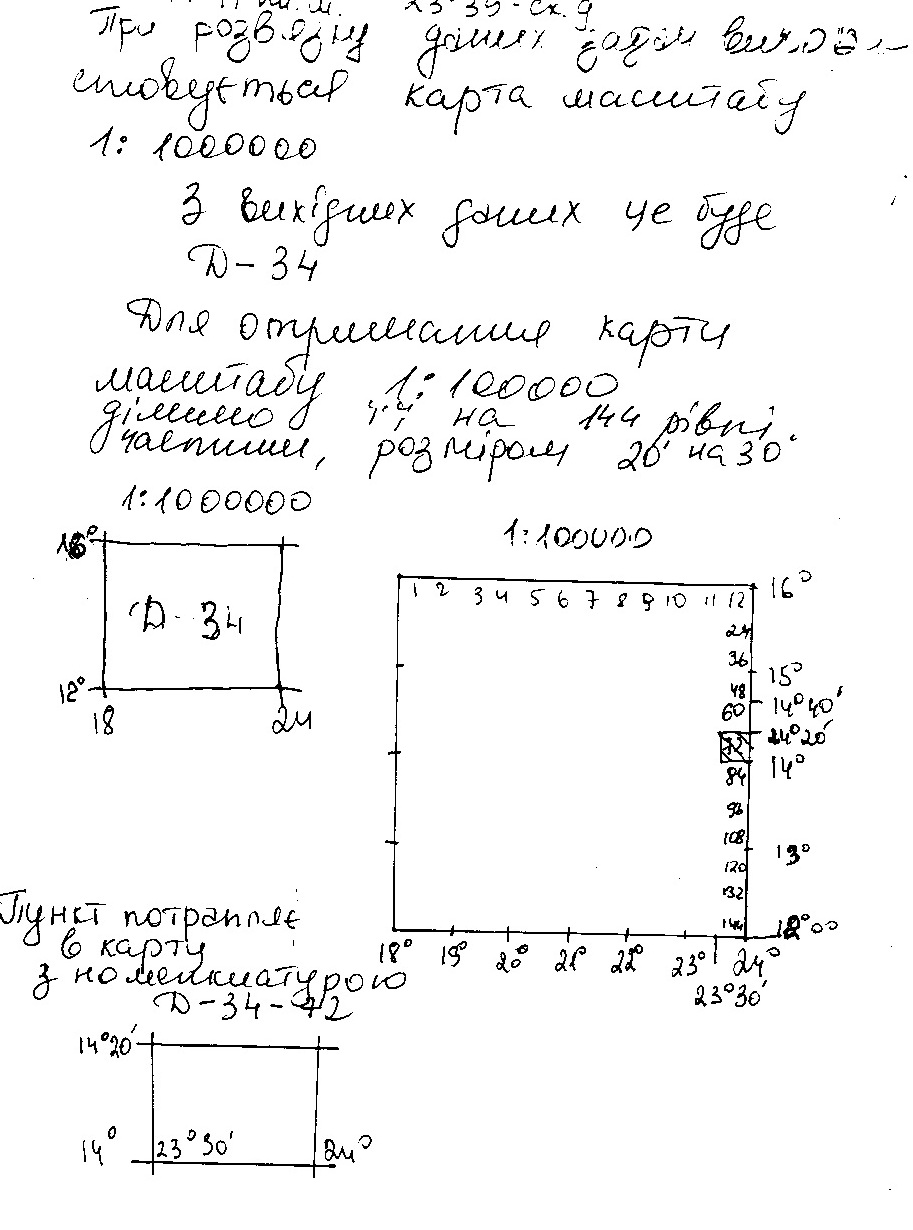 23°39' сх. д
При розвязку даних задач викори-
стовується карта масштабу
1: 1000000
З вихідних даних це буде
D - 34
Для отримання карти
масштабу 1: 100000
ділимо її на 144 рівні
частини, розміром 20' на 30'
1:1000000
1:100000
16°
D - 34
12°
18 24
1 2 3 4 5 6 7 8 9 10 11 12
24
36
48
60
72
84
96
108
120
132
144
16°
15°
14°40'
14°20'
14°
13°
12°00
18° 19° 20° 21° 22° 23° 24°
23°30'
Пункт потрапляє
в карту
з номенклатурою
D - 34 - 72
14°20'
14° 23°30' 24°